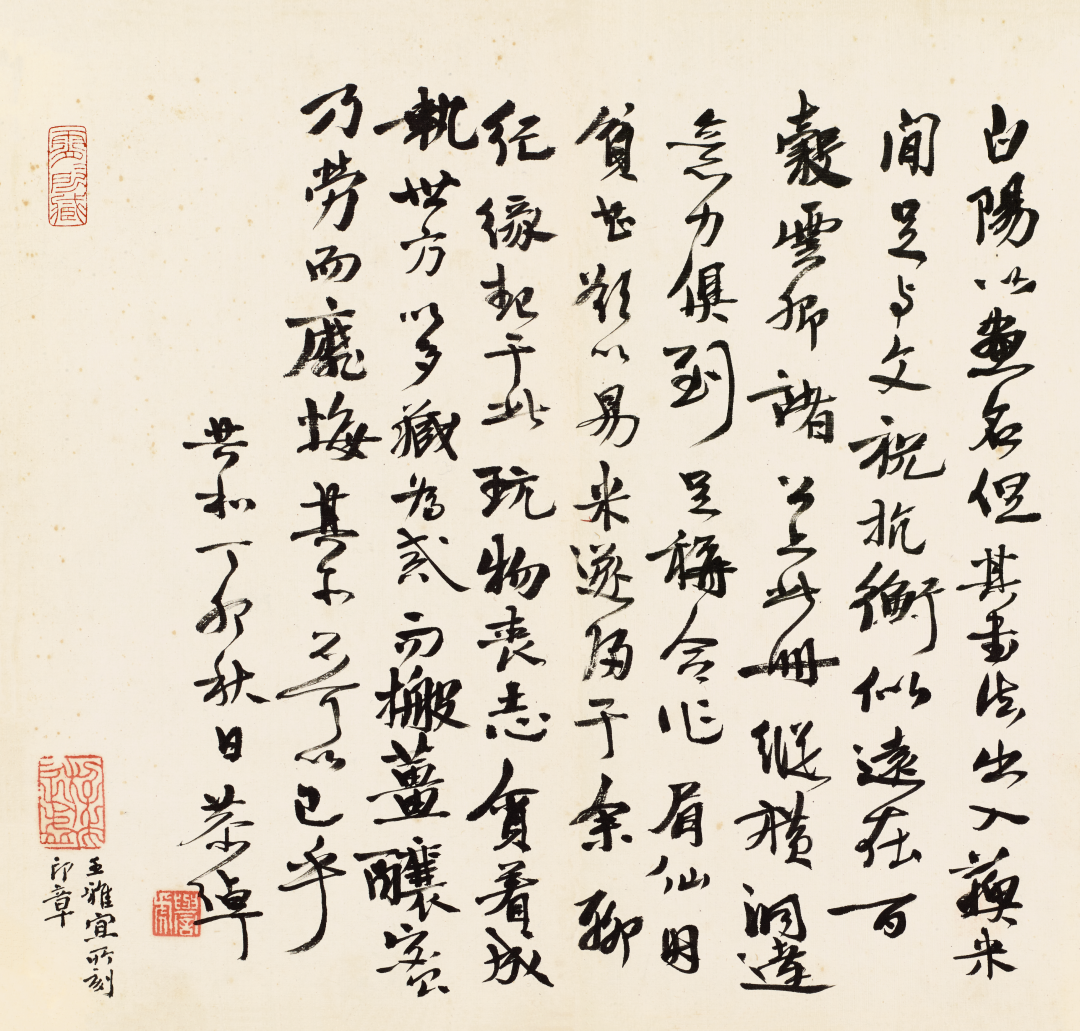 白陽以畫名但其書法出入蘇米
間足与文祝抗衡似遠在百
穀雲卿諸公上此冊縱橫洞達
意力俱到足稱合作眉仙因
貧甚欲以易米遂歸于余聊
紀緣起于此玩物喪志貪着成
執世方以多藏為戒而搬薑釀蜜
乃勞而靡悔其不亦可以已乎
共和丁卯秋日恭綽
譽虎
王雅宜所刻
印章